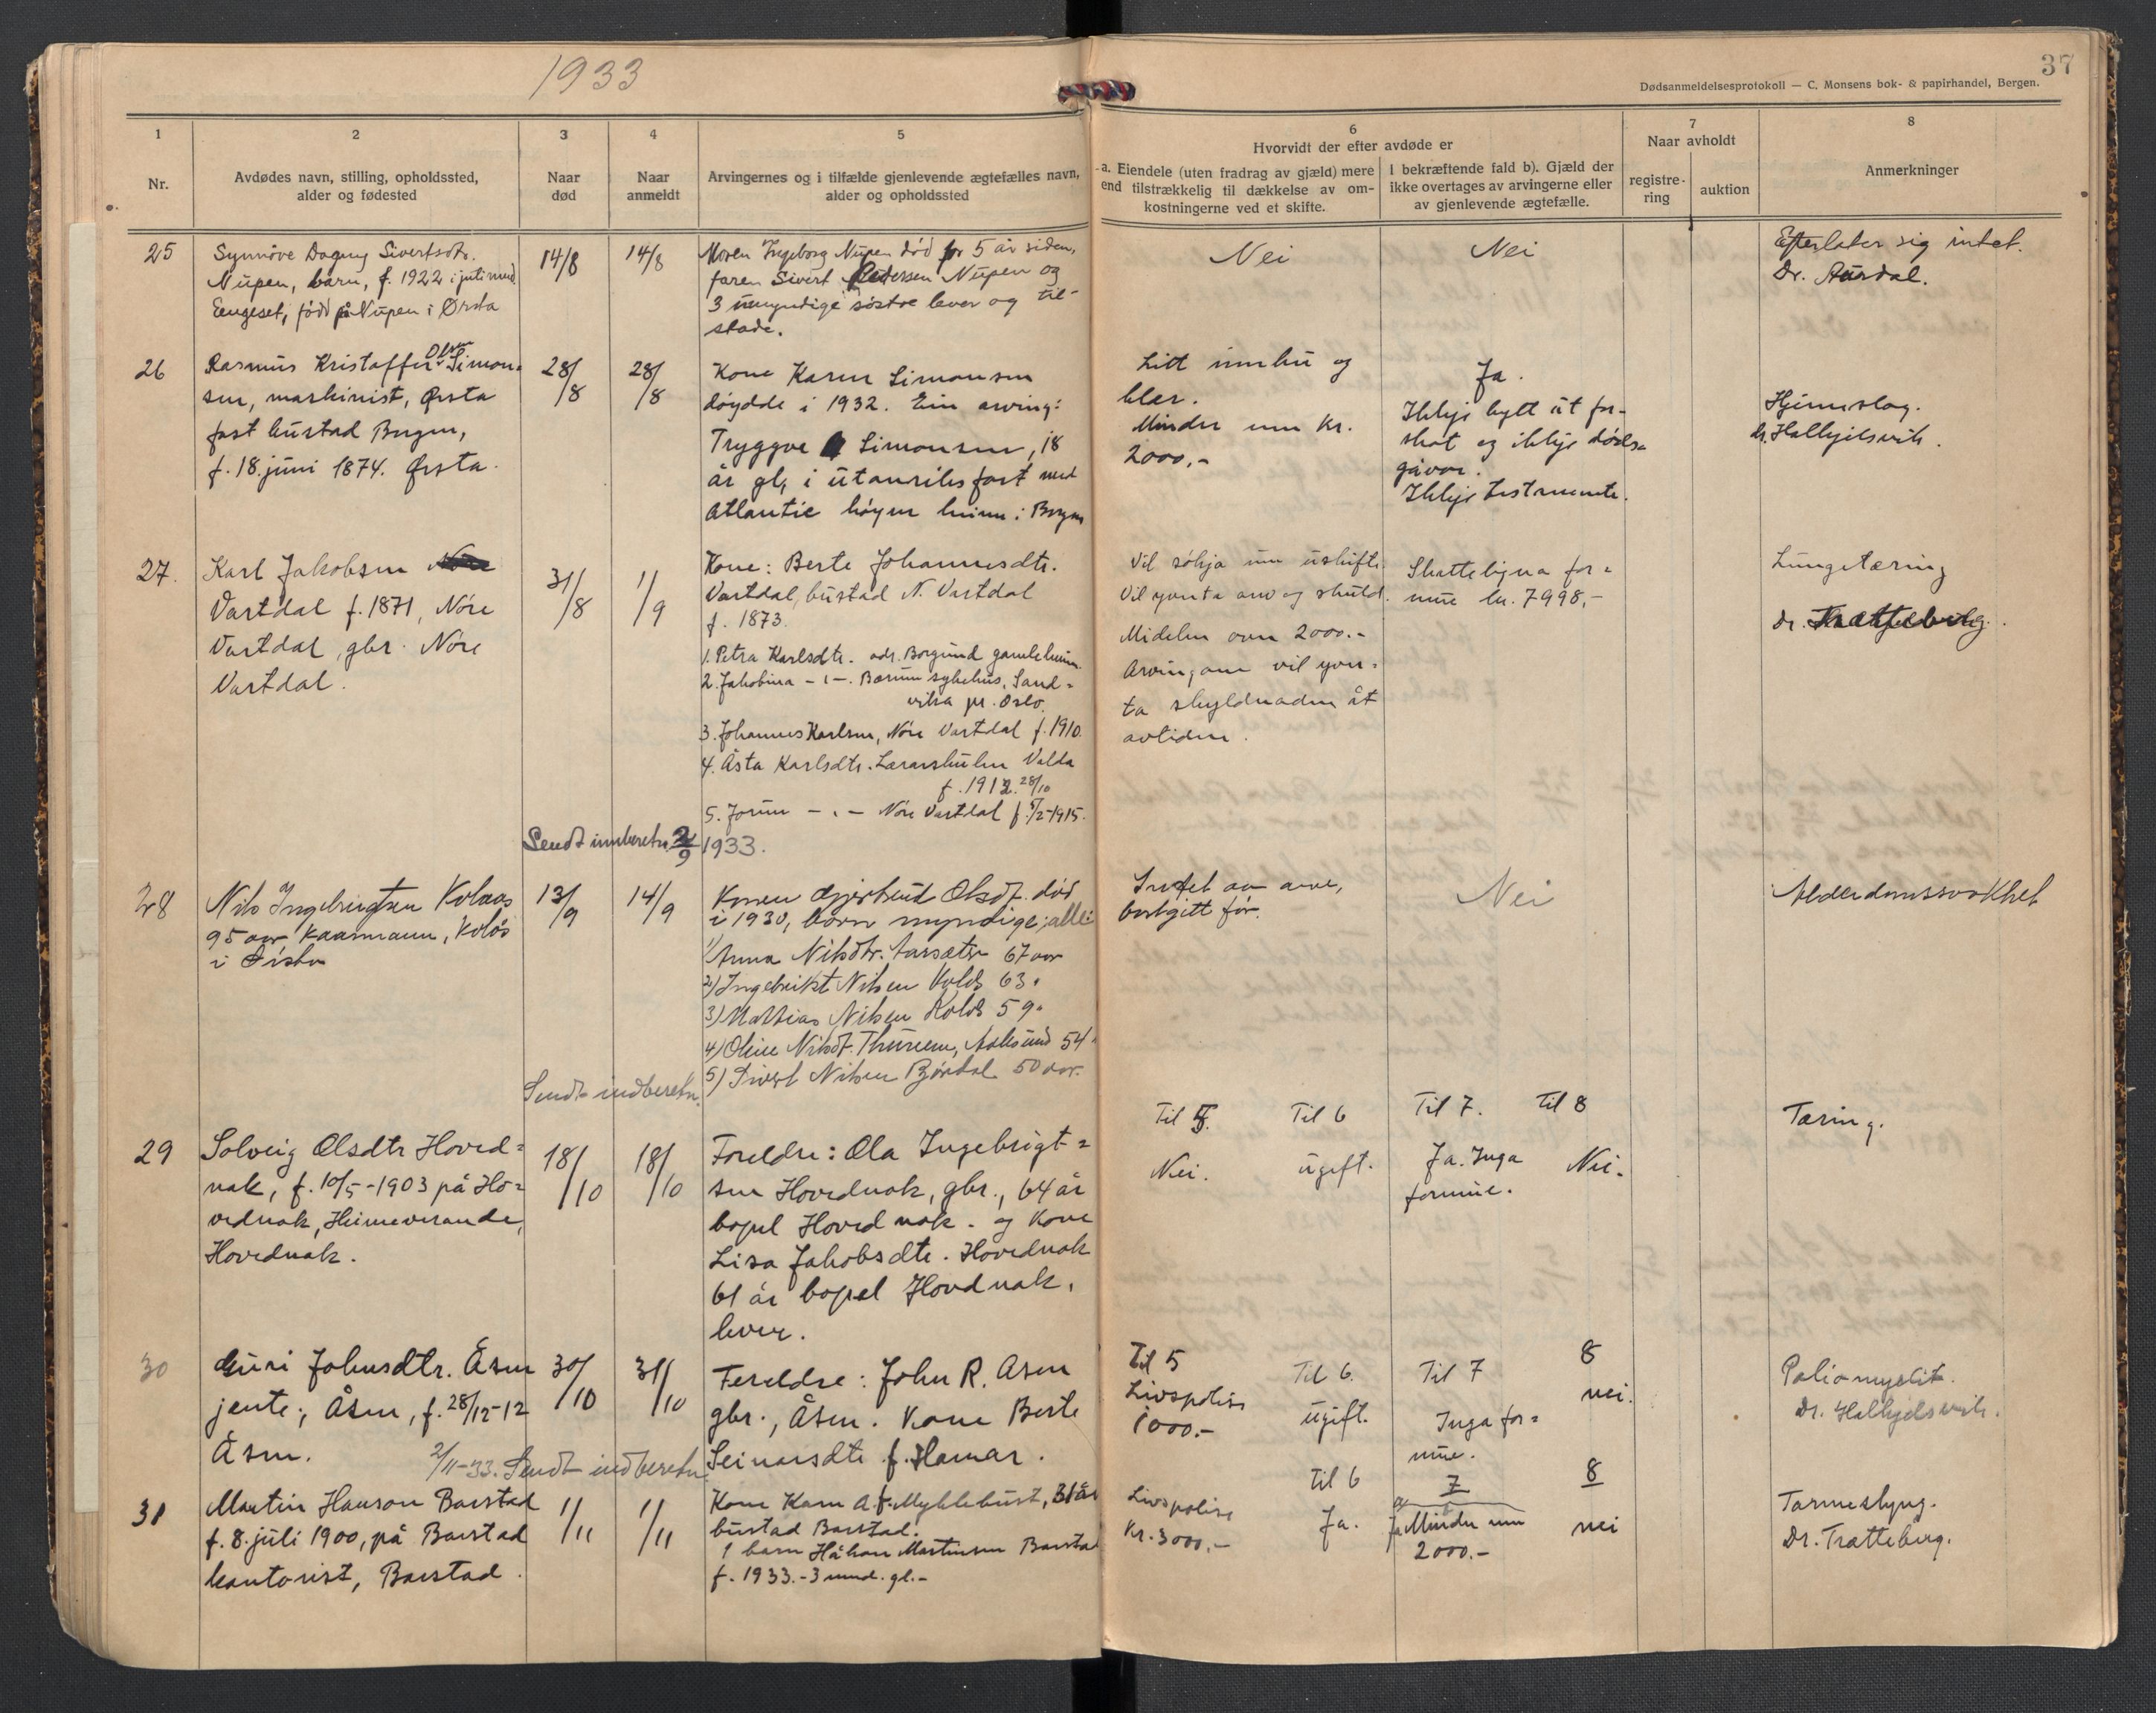 1933
37
Dødsanmeldelsesprotokoll — C. Monsens bok- & papirhandel, Bergen.
1
Nr.
2
Avdødes navn, stilling, opholdssted,
alder og fødested
3
Naar
død
4
Naar
anmeldt
5
Arvingernes og i tilfælde gjenlevende ægtefælles navn,
alder og opholdssted
6
Hvorvidt der efter avdøde er
a. Eiendele (uten fradrag av gjæld) mere
end tilstrækkelig til dækkelse av om-
kostningerne ved et skifte.
I bekræftende fald b). Gjæld der
ikke overtages av arvingerne eller
av gjenlevende ægtefælle.
7
Naar avholdt
registre-
ring
auktion
8
Anmerkninger
25
Synnöve Dagny Sivertsdtr.
Nupen, barn, f. 1922 i juti mnd
Engeset, född på Nupen i Ørsta
14/8
14/8
Moren Ingeborg Nupen död for 5 år siden,
faren Sivert Pedersen Nupen og
3 umyndige søstre lever og til-
stade.
Nei
Nei
Efterlater sig intet.
Dr. Aursdal.
26
Rasmus Kristoffer Olsen Simon=
sen, maskinist, Ørsta
fast bustad Bergen,
f. 18. juni 1874. Ørsta.
28/8
28/8
Kone Karen Simonsen
döydde i 1932. Ein arving:
Tryggve Simonsen, 18
år gl, i utanriksfart med
Atlantic höyrer heime i Bergen
Litt innbu og
klær.
Minder enn kr.
2000,-
Ja.
Ikkje bytt ut for-
skot og ikkje döds=
gåvor.
Ikkje testamente.
Hjerneslag.
dr. Hallkjelsvik.
27.
Karl Jakobsen
Vartdal f. 1871, Nöre
Vartdal gbr. Nöre
Vartdal.
31/8
1/9
Kone: Berte Johannesdtr.
Vartdal, bustad N. Vartdal
f. 1873.
1. Petra Karlsdtr. adr. Borgund gamleheim.
2. Jakobina - " -. Bærum sykehus, Sand=
vika pr. Oslo.
3. Johannes Karlsen, Nöre Vartdal f. 1910.
4. Åsta Karlsdtr. Lærarskulen Volda
f. 1912. 28/10
5. Jorun - " - Nöre Vartdal f. 5/2-1915.
Sendt innberetn. 2/9 1933.
Vil sökja um uskifte.
Vil yverta arv og skuld.
Midelen over 2000.-
Arvingane vil yver=
ta skyldnaden åt
avlidne.
Skatteligna for=
mue kr. 7998,-
Lungetæring
Dr. Trætteberg.
28
Nils Ingebrigtsen Kolaas
95 aar Kaarmann, Kolås
i Ørsta
13/9
14/9
Konen Gjertrud Olsdt. död
i 1930, börn myndige; alle:
1) Anna Nilsdtr. Aarsæter 67 aar
2) Ingebrikt Nilsen Kolås 63 "
3) Mattias Nilsen Kolås 59 "
4) Oline Nilsdt. Thunem, Aalesund 54 "
5) Sivert Nilsen Björdal 50 aar.
Sendt indberetn.
Intet av arve,
bortgitt för.
Nei
Alderdomssvakhet
29
Solveig Olsdtr Hovd=
nak, f. 10/5-1903 på Ho=
vdnak, Heimeverande,
Hovdnak.
18/10
18/10
Foreldre: Ola Ingebrigt=
sen Hovdnak, gbr., 64 år
bopel Hovdnak. og Kone
Lisa Jakobsdtr. Hovdnak
61 år bopel Hovdnak.
lever.
Til 5.
Nei.
Til 6
ugift.
Til 7.
Ja. Inga
formue.
Til 8
Nei.
Tæring.
30
Guri Johnsdtr. Åsen
jente, Åsen, f. 28/12-12
Åsen.
30/10
31/10
Foreldre: John R. Åsen
gbr., Åsen. Kone Berte
Seinarsdtr f. Hamar.
2/11-33. Sendt indberetn.
Til 5
Livspolise
1000.-
Til 6.
ugift.
Til 7
Inga for=
mue.
8
nei.
Poliomyelit.
Dr. Hallkjelsvik.
31
Martin Hanson Barstad
f. 8. juli 1900, på Barstad
kontorist, Barstad.
1/11
1/11
Kone Karn A. f. Myklebust, 31 år
bustad Barstad.
1 barn Håkon Martinsen Barstad
f. 1933.- 3 mnd. gl.-
Livspolise
Kr. 3000.-
Til 6
Ja.
7
Ja Minder enn
2000.-
8
nei
Tarmeslyng.
Dr. Trætteberg.